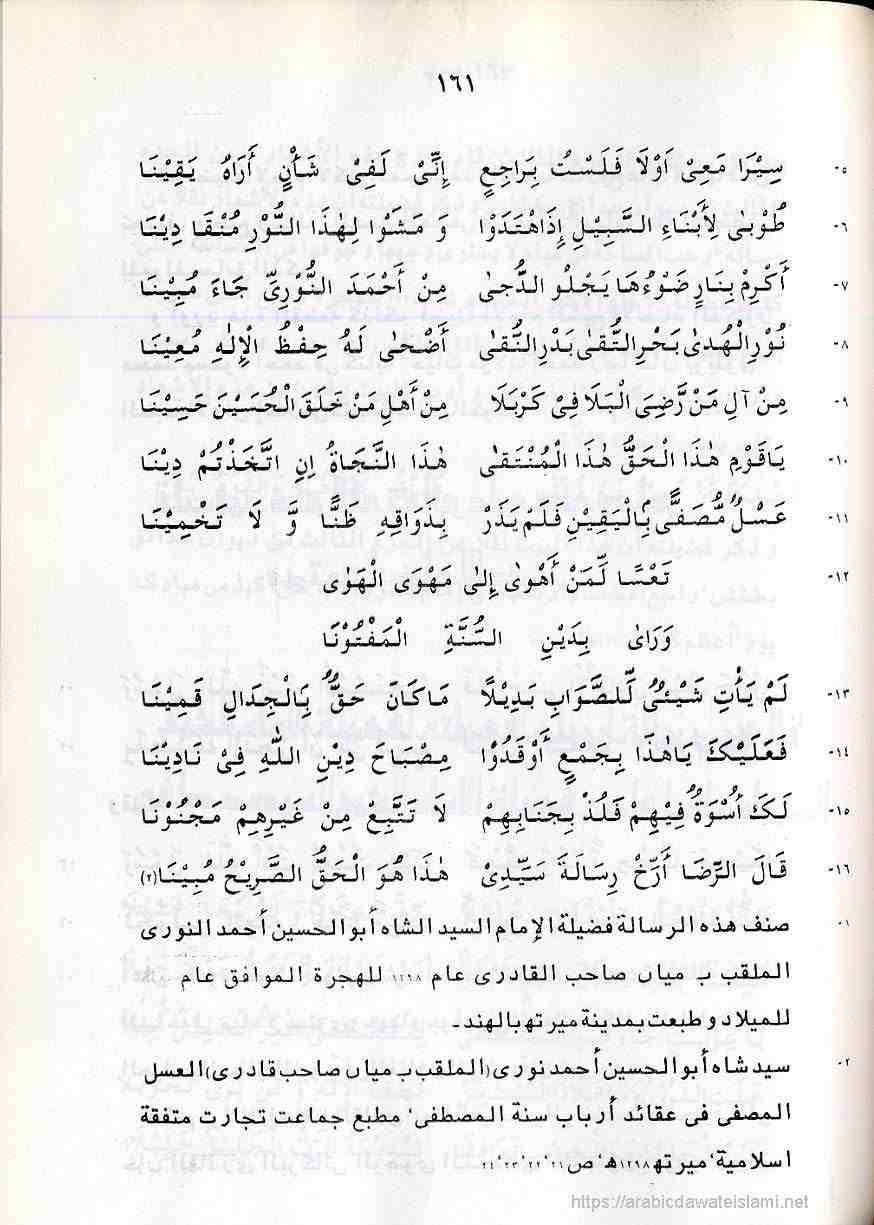 ١٦١
٥- سِيْرَا مَعِيْ اَوْلَا فَلَسْتُ بِرَاجِعٍ إِنِّيْ لَفِيْ شَأْنٍ أَرَاهُ يَقِيْنَا
٦- طُوْبىٰ لِأَبْنَاءِ السَّبِيْلِ إِذَاهْتَدَوْا وَ مَشَوْا لِهٰذَا النُّوْرِ مُنْقَا دِيْنَا
٧- أَكْرِمْ بِنَارٍ ضَوْءُهَا يَجْلُو الدُّجىٰ مِنْ أَحْمَدَ النُّوْرِيِّ جَاءَ مُبِيْنَا
٨- نُوْرِالْهُدىٰ بَحْرِالتُّقىٰ بَدْرِالنَّقىٰ أَضْحٰى لَهُ حِفْظُ الْإِلٰهِ مُعِيْنَا
٩- مِنْ آلِ مَنْ رَّضِيَ الْبَلَا فِيْ كَرْبَلَا مِنْ أَهْلِ مَنْ خَلَقَ الْحُسَيْنَ حَسِيْنَا
١٠- يَاقَوْمِ هٰذَا الْحَقُّ هٰذَا الْمُنْتَقىٰ هٰذَا النَّجَاةُ اِنِ اتَّخَذْتُمْ دِيْنَا
١١- عَسْلٌ مُّصَفًّى بِالْيَقِيْنِ فَلَمْ يَذَرْ بِذَوَاقِهِ ظَنًّا وَّ لَا تَخْمِيْنَا
١٢- تَعْسًا لِّمَنْ أَهْوىٰ إِلىٰ مَهْوَى الْهَوٰى
وَرَاىٰ بِدَيْنِ السُّنَّةِ الْمَفْتُوْنَا
١٣- لَمْ يَأْتِ شَيْئىٌ لِّلصَّوَابِ بَدِيْلًا مَاكَانَ حَقٌّ بِالْجِدَالِ قَمِيْنَا
١٤- فَعَلَيْكَ يَاهٰذَا بِجَمْعٍ أَوْقَدُوْا مِصْبَاحَ دِيْنِ اللّٰهِ فِيْ نَادِيْنَا
١٥- لَكَ أُسْوَةٌ فِيْهِمْ فَلُذْ بِجَنَابِهِمْ لَا تَتَّبِعْ مِنْ غَيْرِهِمْ مَجْنُوْنَا
١٦- قَالَ الرِّضَا أَرِّخْ رِسَالَةَ سَيِّدِيْ هٰذَا هُوَ الْحَقُّ الصَّرِيْحُ مُبِيْنَا(٢)
١- صنف هذه الرسالة فضيلة الإمام السيد الشاه أبو الحسين أحمد النورى
الملقب بـ ميان صاحب القادرى عام ١٢٩٨ للهجرة الموافق عام
للميلاد و طبعت بمدينة ميرتھ بالهند۔
٢- سيد شاه أبو الحسين أحمد نورى (الملقب بـ ميان صاحب قادرى) العسل
المصفى فى عقائد أرباب سنة المصطفى، مطبع جماعت تجارت متفقة
اسلامية، ميرتھ ١٢٩٨ھ، ص ٢١، ٢٢، ٢٣، ٢٤
https://arabicdawateislami.net